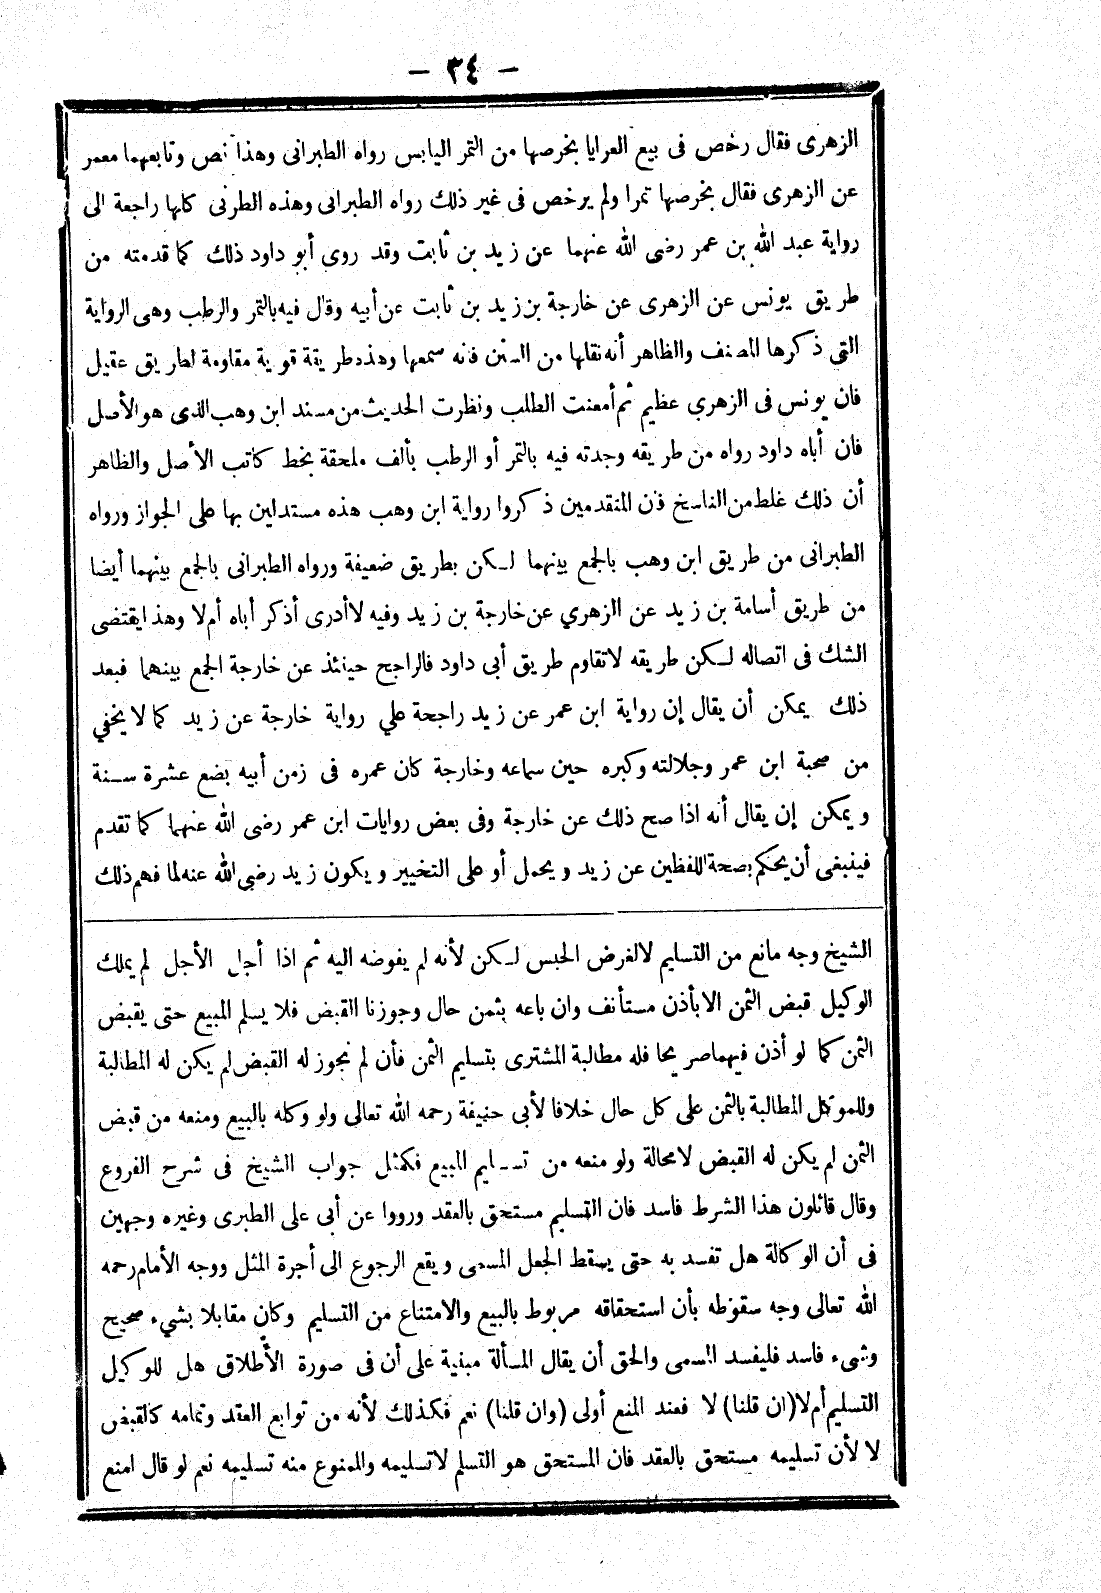 - ٣٤ -
الزهرى فقال رخص فى بيع العرايا بخرصها من التمر اليابس رواه الطبرانى وهذا نص وتابعهما معمر
عن الزهرى فقال بخرصها تمرا ولم يرخص فى غير ذلك رواه الطبرانى وهذه الطرق كلها راجعة الى
رواية عبد الله بن عمر رضى الله عنهما عن زيد بن ثابت وقد روى أبو داود ذلك كما قدمته من
طريق يونس عن الزهرى عن خارجة بن زيد بن ثابت عن أبيه وقال فيه بالتمر والرطب وهى الرواية
التى ذكرها المصنف والظاهر أنه نقلها من السنن فانه سمعها وهذه طريقة قوية مقاومة لطريق عقيل
فان يونس فى الزهرى عظيم ثم أمعنت الطلب ونظرت الحديث من مسند ابن وهب الذى هو الأصل
فان أباه داود رواه من طريقه وجدته فيه بالتمر أو الرطب بألف ملحقة بخط كاتب الأصل والظاهر
أن ذلك غلط من الناسخ فن المتقدمين ذكروا رواية ابن وهب هذه مستدلين بها على الجواز ورواه
الطبرانى من طريق ابن وهب بالجمع بينهما لكن بطريق ضعيفة ورواه الطبرانى بالجمع بينهما أيضا
من طريق أسامة بن زيد عن الزهري عن خارجة بن زيد وفيه لا أدرى أذكر أباه أم لا وهذا يقتضى
الشك فى اتصاله لكن طريقه لا تقاوم طريق أبى داود فالراجح حينئذ عن خارجة الجمع بينهما فبعد
ذلك يمكن أن يقال إن رواية ابن عمر عن زيد راجحة علي رواية خارجة عن زيد كما لا يخفي
من صحبة ابن عمر وجلالته وكبره حين سماعه وخارجة كان عمره فى زمن أبيه بضع عشرة سنة
ويمكن إن يقال أنه اذا صح ذلك عن خارجة وفى بعض روايات ابن عمر رضى الله عنهما كما تقدم
فينبغى أن يحكم بصحة اللفظين عن زيد ويحمل أو على التخيير ويكون زيد رضى الله عنه لما فهم ذلك
الشيخ وجه مانع من التسليم لا لغرض الحبس لكن لأنه لم يفوضه اليه ثم اذا أجل الأجل لم يملك
الوكيل قبض الثمن الا بأذن مستأنف وان باعه بثمن حال وجوزنا القبض فلا يسلم المبيع حتى يقبض
الثمن كما لو أذن فيهما صريحا فله مطالبة المشترى بتسليم الثمن فأن لم نجوز له القبض لم يكن له المطالبة
وللموكل المطالبة بالثمن على كل حال خلافا لأبى حنيفة رحمه الله تعالى ولو وكله بالبيع ومنعه من قبض
الثمن لم يكن له القبض لا محالة ولو منعه من تسليم المبيع فكمثل جواب الشيخ فى شرح الفروع
وقال قائلون هذا الشرط فاسد فان التسليم مستحق بالعقد ورووا عن أبى على الطبرى وغيره وجهين
فى أن الوكالة هل تفسد به حتى يسقط الجعل المسمى ويقع الرجوع الى أجرة المثل ووجه الأمام رحمه
الله تعالى وجه سقوطه بأن استحقاقه مربوط بالبيع والامتناع من التسليم وكان مقابلا بشىء صحيح
وشىء فاسد فليفسد المسمى والحق أن يقال المسألة مبنية على أن فى صورة الأطلاق هل للوكيل
التسليم أم لا (ان قلنا) لا فعند المنع أولى (وان قلنا) نعم فكذلك لأنه من توابع العقد وتمامه كالقبض
لا لأن تسليمه مستحق بالعقد فان المستحق هو التسلم لا تسليمه والممنوع منه تسليمه نعم لو قال امنع